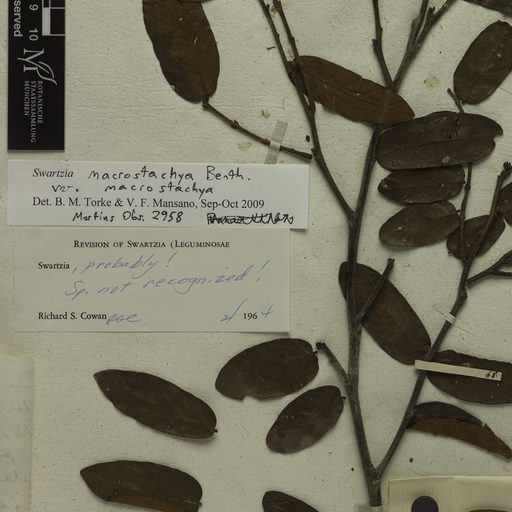 served
9 10
BOTANISCHE
STAATSSAMMLUNG
MÜNCHEN
Swartzia macrostachya Benth.
var. macrostachya
Det. B. M. Torke & V. F. Mansano, Sep-Oct 2009
Martius Obs. 2958
REVISION OF SWARTZIA (LEGUMINOSAE
Swartzia, probably!
Sp. not recognized!
Richard S. Cowan 2/ 1964